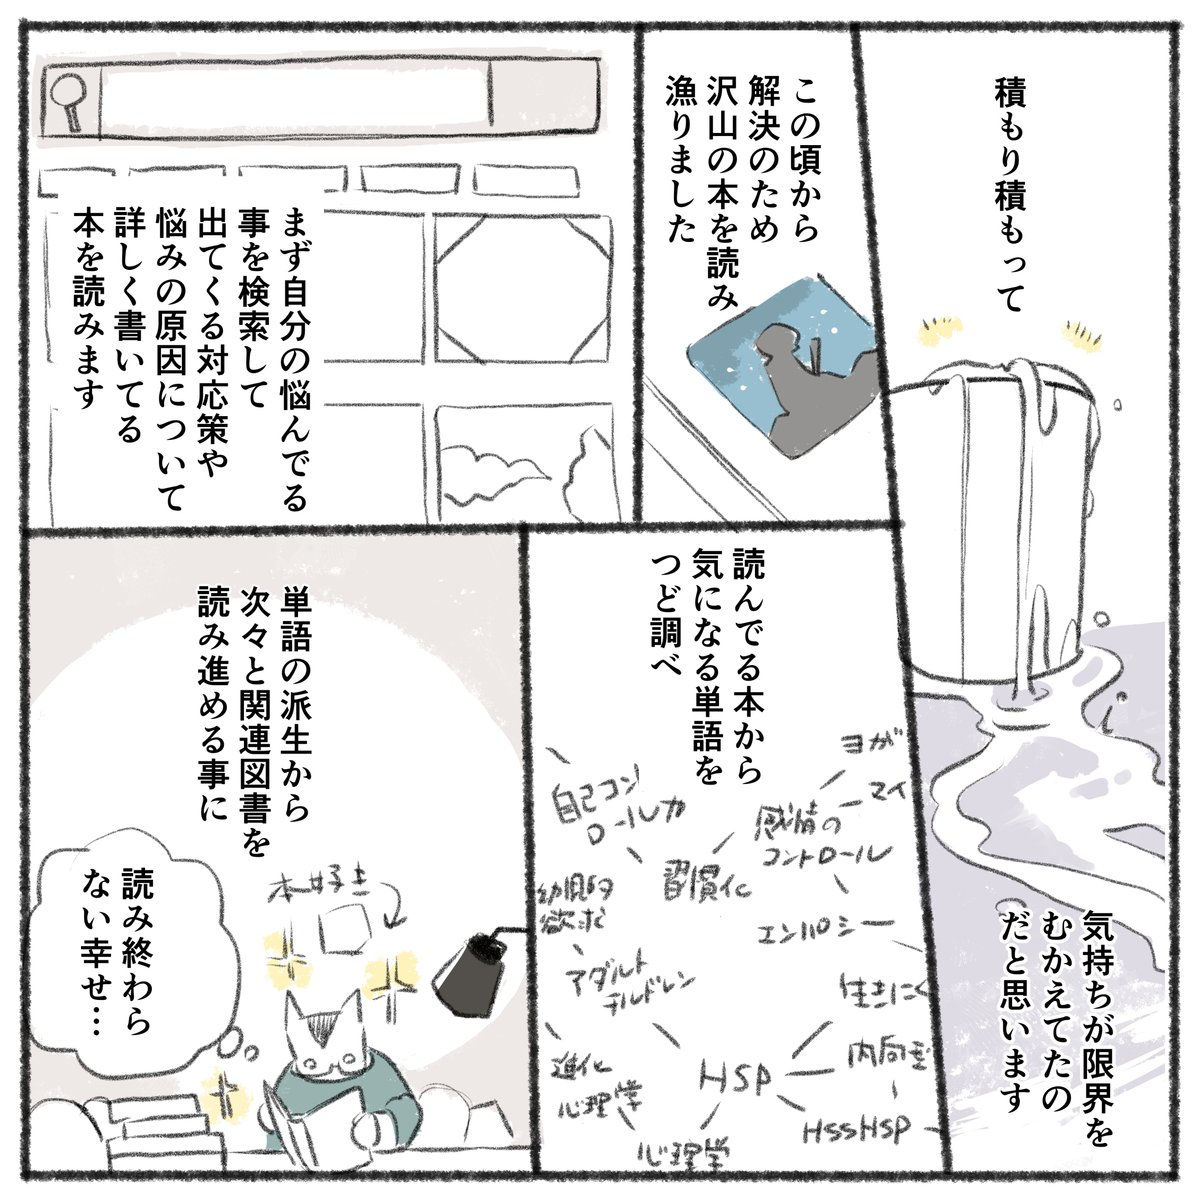 積もり積もって
気持ちが限界を
むかえてたの
だと思います
この頃から
解決のため
沢山の本を読み
漁りました
まず自分の悩んでる
事を検索して
出てくる対応策や
悩みの原因について
詳しく書いてる
本を読みます
読んでる本から
気になる単語を
つど調べ
ヨガ
マイ
感情の
コントロール
自己コン
ロール力
習慣化
幼児的
欲求
エンパシー
アダルト
チルドレン
生きにく
内向型
HSP
進化
心理学
HSSHSP
心理学
単語の派生から
次々と関連図書を
読み進める事に
本好き
読み終わら
ない幸せ…